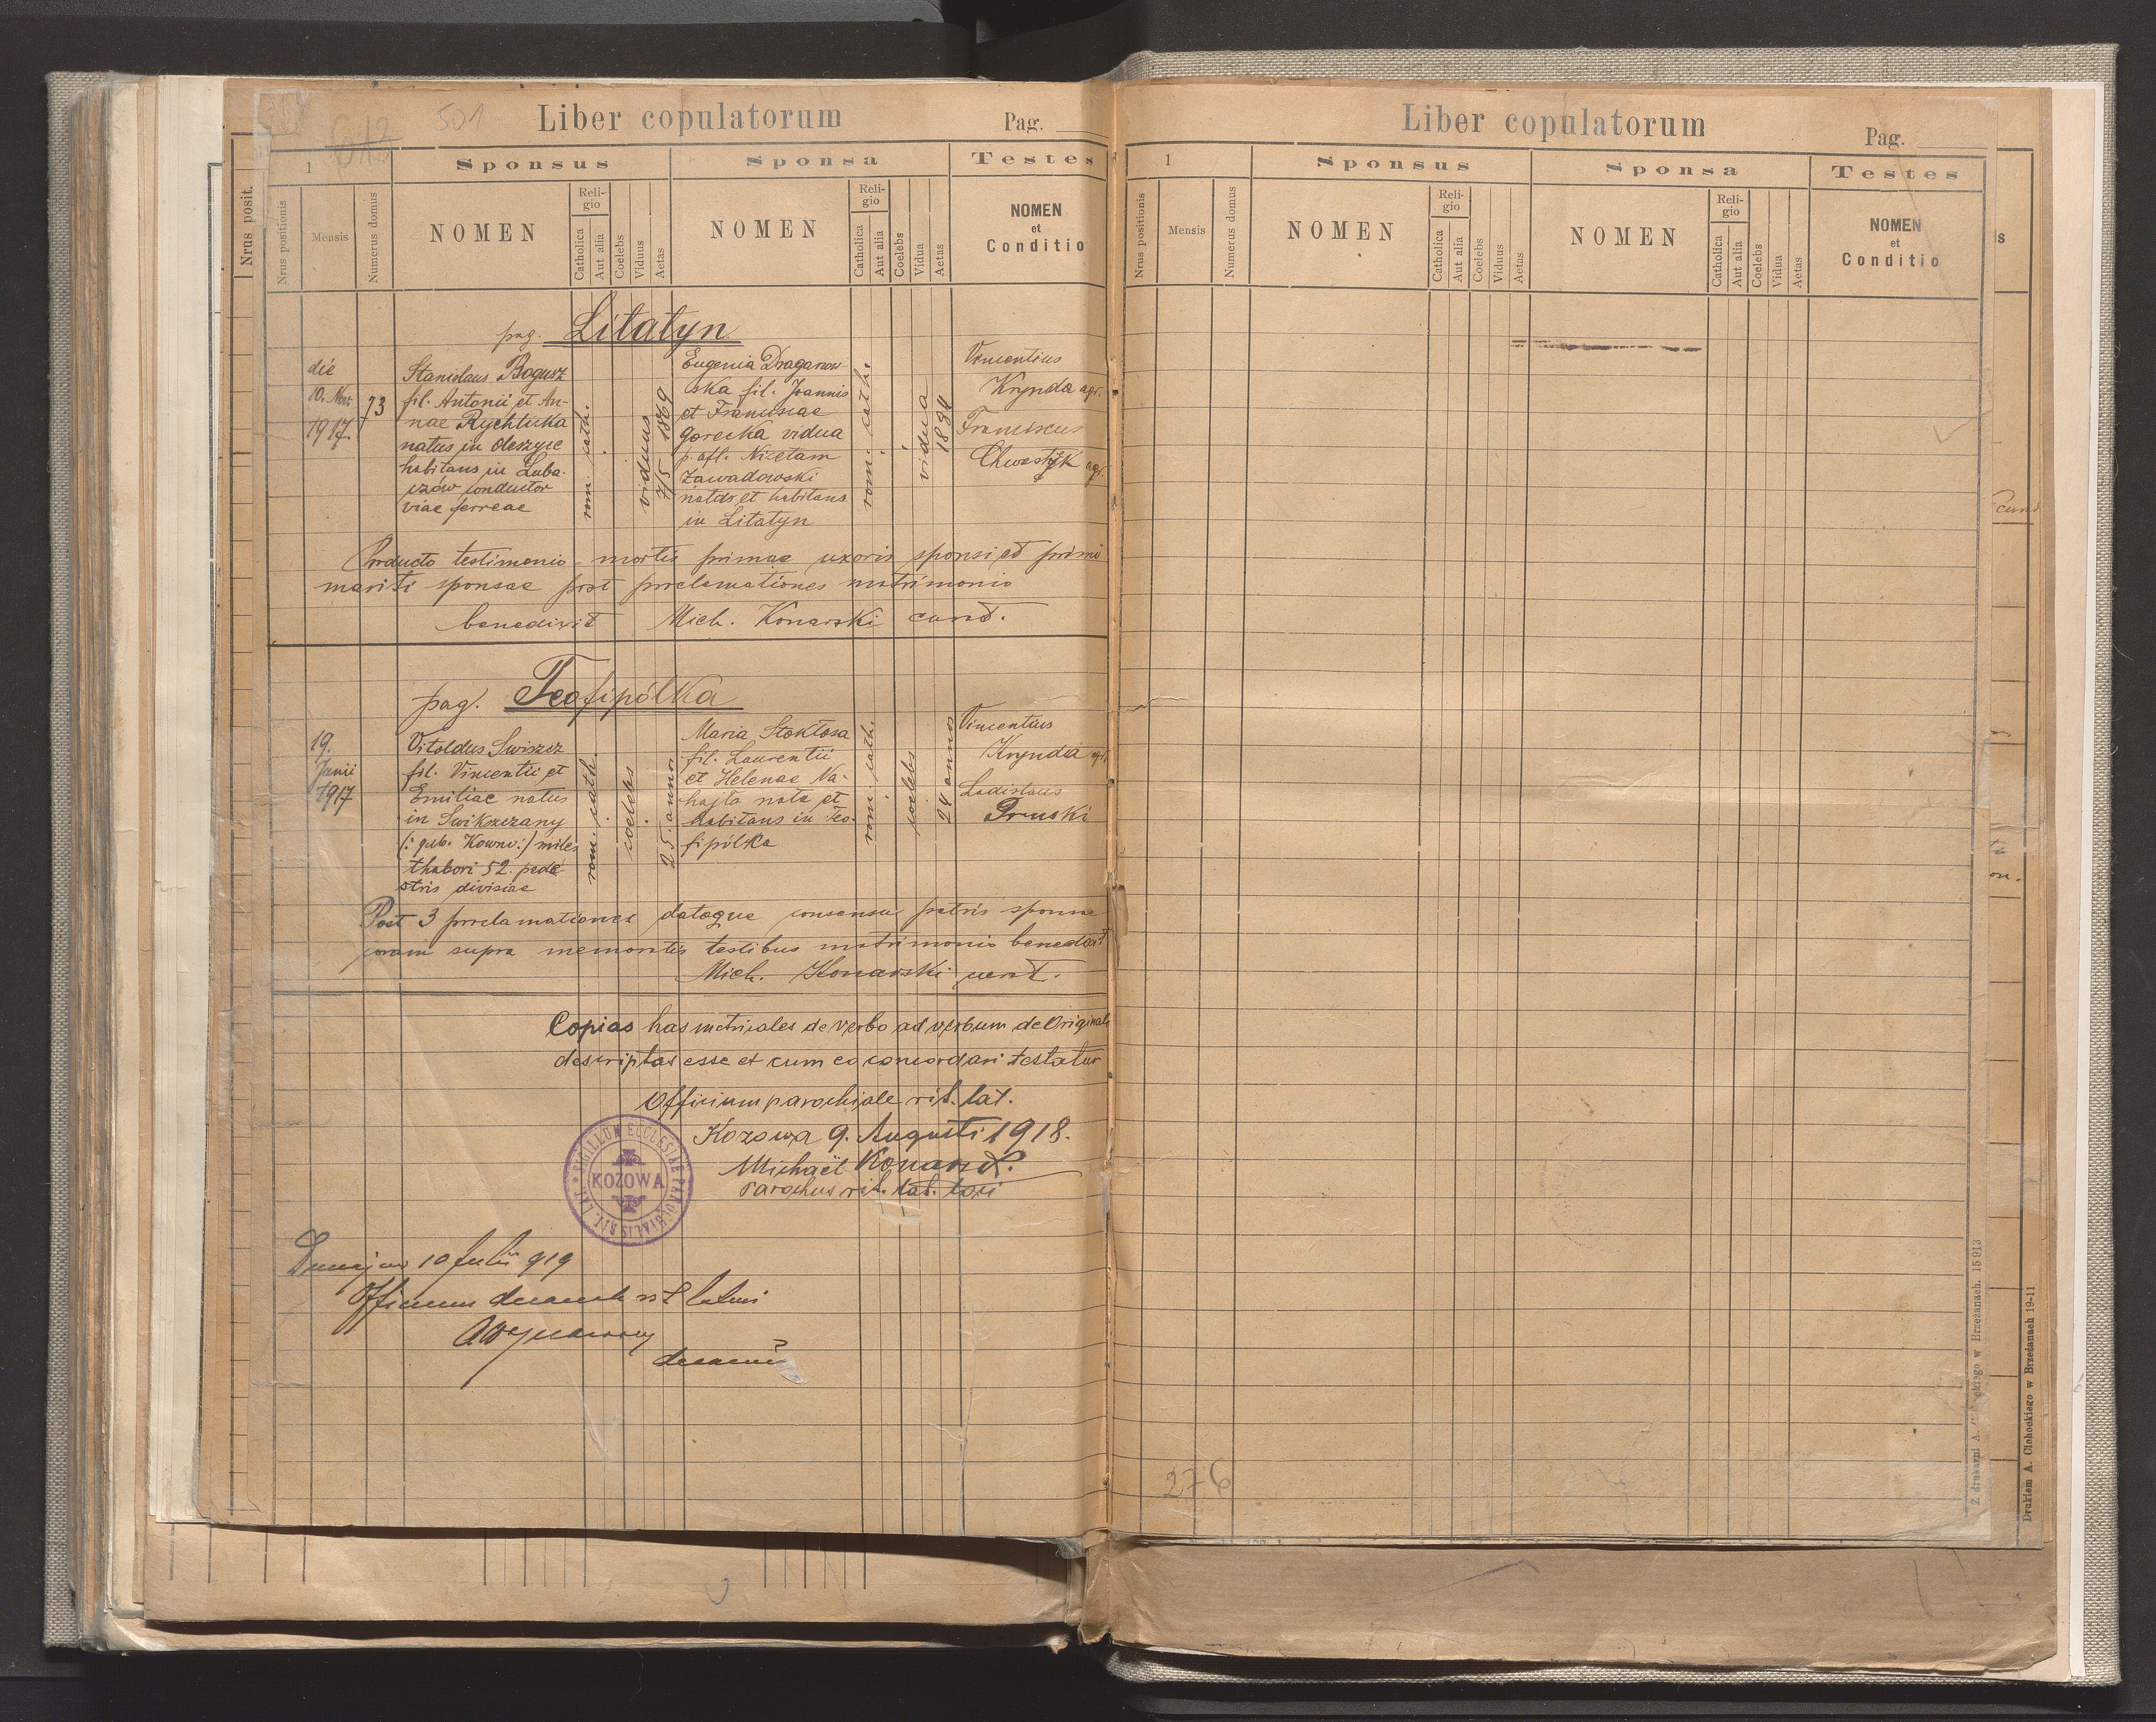 612
501
Liber copulatorum
Pag.
Nrus posit.
1
Sponsus
Sponsa
Testes
Nrus positionis
Mensis
Numerus domus
NOMEN
Religio
Catholica
Aut alia
Coelebs
Viduus
Aetas
NOMEN
Religio
Catholica
Aut alia
Coelebs
Vidua
Aetas
NOMEN
et
Conditio
pag. Litatyn
die
10. Nov.
1917.
73
Stanislaus Bogusz
fil. Antonii et An-
nae Rychlicka
natus in Oleszyce
habitans in Luba-
czów conductor
viae ferreae
rom. cath.
viduus
7/5 1869
Eugenia Draganow-
ska fil. Joannis
et Franciscae
Gorecka vidua
p. afl. Nicetam
Zawadowski
nata et habitans
in Litatyn
rom. cath.
vidua
1894
Vincentius
Krynda agr.
Franciscus
Chwastyk agr.
Producto testimonio mortis primae uxoris sponsi et primi
mariti sponsae post proclamationes matrimonio
benedixit Mich. Konarski
pag. Teofipólka
19.
Junii
1917
Vitoldus Swiszcz
fil. Vincentii et
Emiliae natus
in Swikszczany
(: gub. Kowno :) miles
thabori 52. pede-
stris divisiae
rom. cath.
coelebs
25. annor.
Maria Stoktosa
fil. Laurentii
et Helenae Na-
hajło nata et
habitans in Teo-
fipólka
rom. cath.
coelebs
24 annos
Vincentius
Krynda agr.
Ladislaus
Pruski
Post 3 proclamationes datoque consensu patris sponsae
coram supra memoratis testibus matrimonio benedixit
Mich. Konarski
Copias has metricales de verbo ad verbum de Originali
descriptas esse et cum eo concordari testatur
Officium parochiale rit. lat.
Kozowa 9. Augusti 1918.
Michaël Konarski
Parochus rit. lat. loci
SIGILLUM ECCLESIAE PAROCHIALIS RIT. LAT.
KOZOWA
Dunajów 10 Julii 919
Officium decanale rit latini
decanus
Liber copulatorum
Pag.
1
Sponsus
Sponsa
Testes
Nrus positionis
Mensis
Numerus domus
NOMEN
Religio
Catholica
Aut alia
Coelebs
Viduus
Aetas
NOMEN
Religio
Catholica
Aut alia
Coelebs
Vidua
Aetas
NOMEN
et
Conditio
276
Z drukarni A. w Brzeżanach. 15913
Drukiem A. Cichockiego w Brzeżanach 19-11